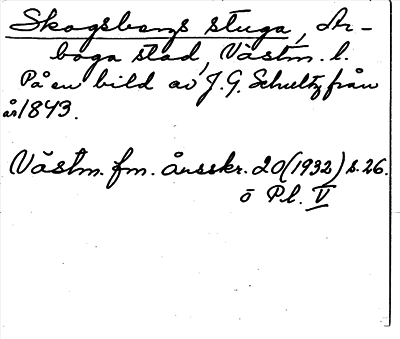 Skogsbergs stuga, Ar-
boga stad, Västm. l.
På en bild av J. G. Schultz från
år 1843.
Västm. fm. årsskr. 20 (1932) s. 26.
o Pl. V